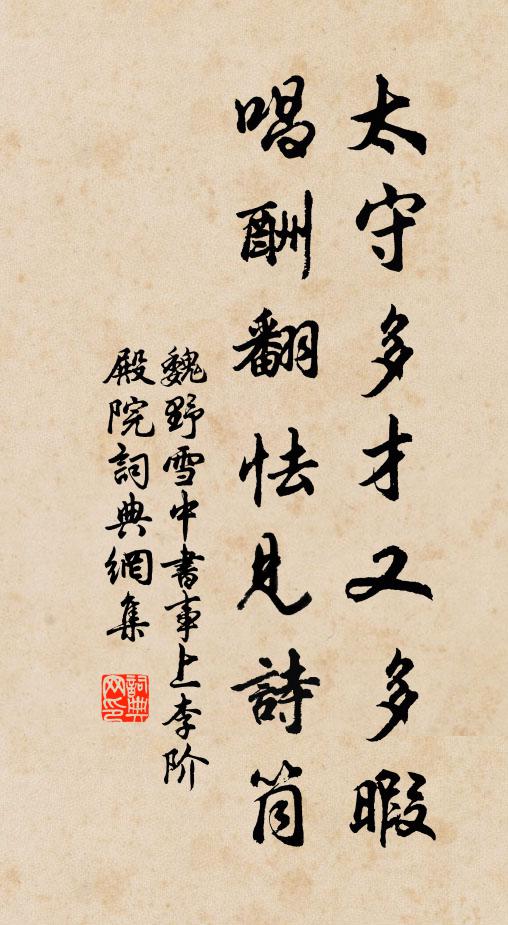 太守多才又多暇
唱酬翻怯見詩筒
魏野雪中書事上李阶
殿院詞典網集
詞典網印